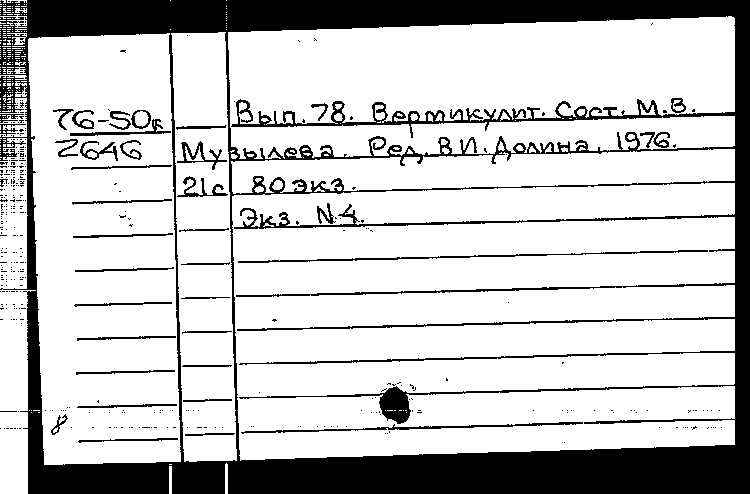 76-50к Вып. 78. Вермикулит. Сост. М.В.
2646 Музылева. Ред. В.И. Долина. 1976.
21с 80 экз.
Экз. N4.
8